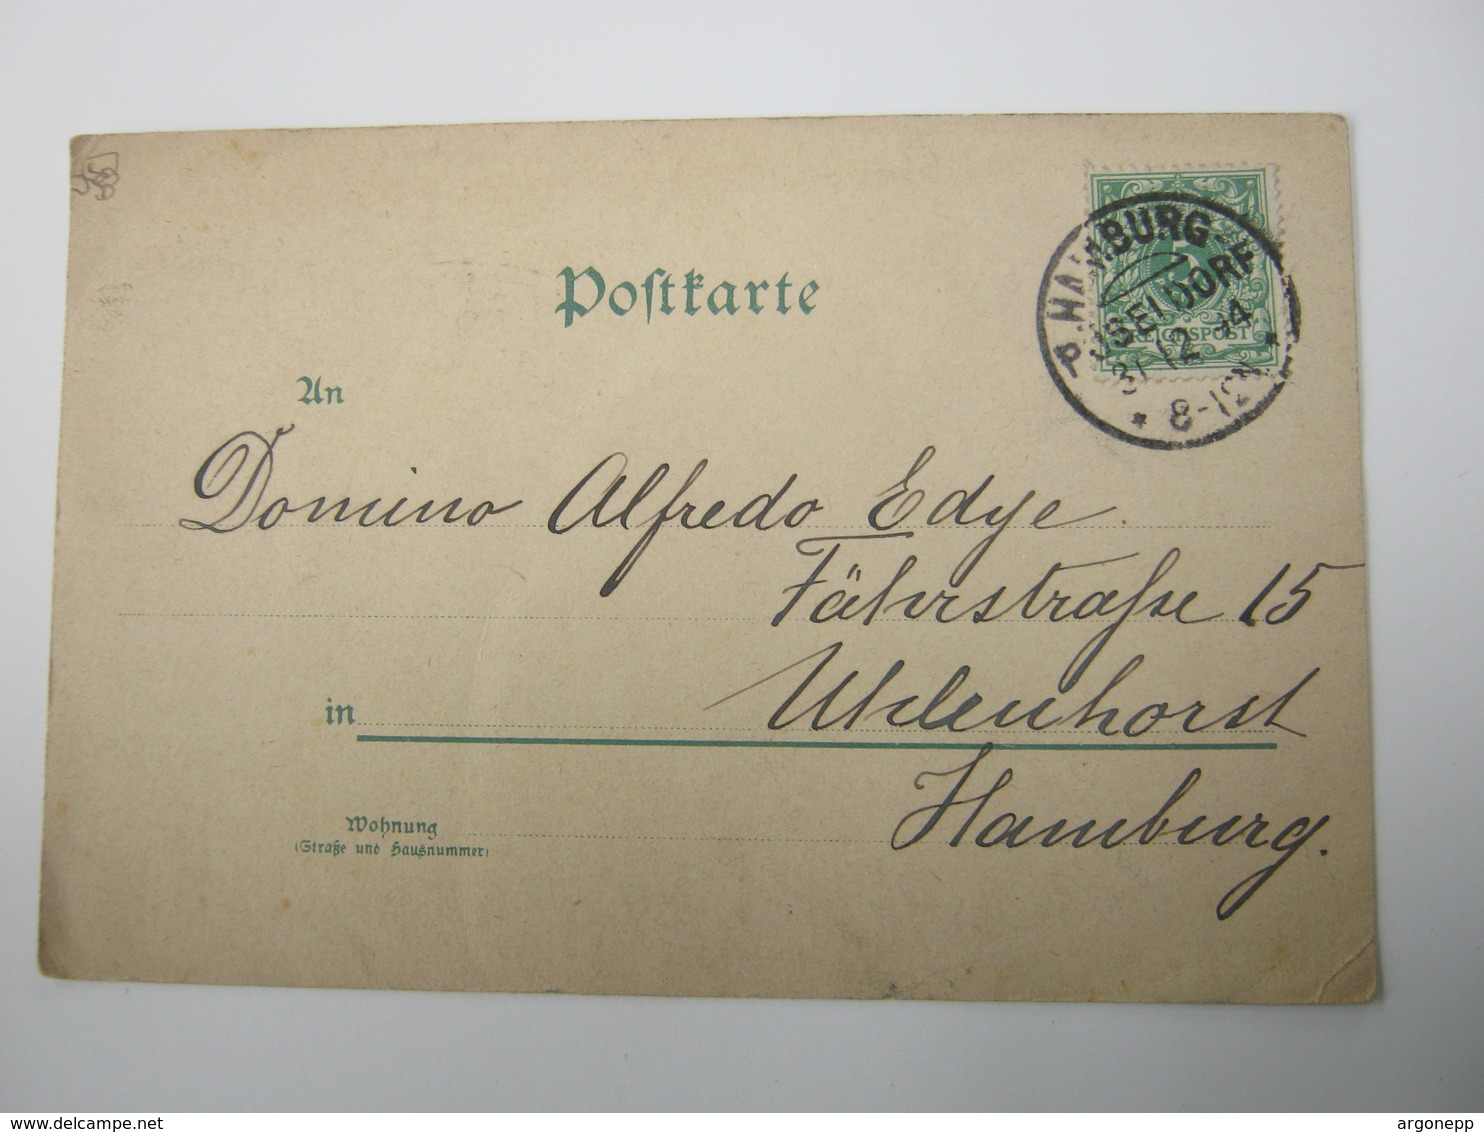 Postkarte
An
Domino Alfredo Edye
Fährstraße 15
in Uhlenhorst
Hamburg.
Wohnung
(Straße und Hausnummer)
5
REICHSPOST
P. HAMBURG-
SELDORF
31 12 94
* 8-12N. *
www.delcampe.net
argonepp